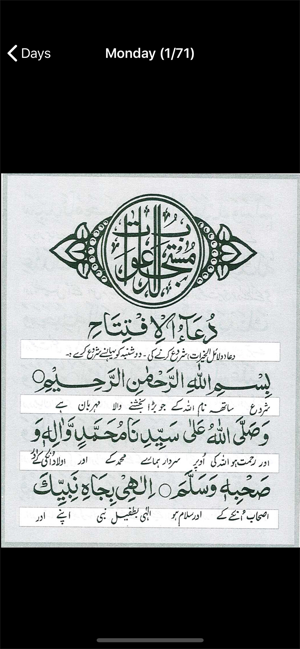 Days
Monday (1/71)
مستجاب الدعوات
دُعَاءُ الْاِفْتِتَاحِ
دعاء دلائل الخیرات شروع کرنے کی - دوشنبہ کو یہاں سے شروع کرے :-
بِسْمِ اللهِ الرَّحْمٰنِ الرَّحِيْمِ ○
شروع ساتھ نام اللہ کے جو بڑا بخشنے والا مہربان ہے
وَصَلَّى اللهُ عَلٰى سَيِّدِنَا مُحَمَّدٍ وَّاٰلِهٖ وَ
اور رحمت ہو اللہ کی اوپر سردار ہمارے محمد کے اور اولاد انکی کے اور
صَحْبِهٖ وَسَلَّمَ ○ اِلٰهِيْ بِجَاهِ نَبِيِّكَ
اصحاب انکے کے اور سلام ہو الٰہی بطفیل نبی اپنے اور